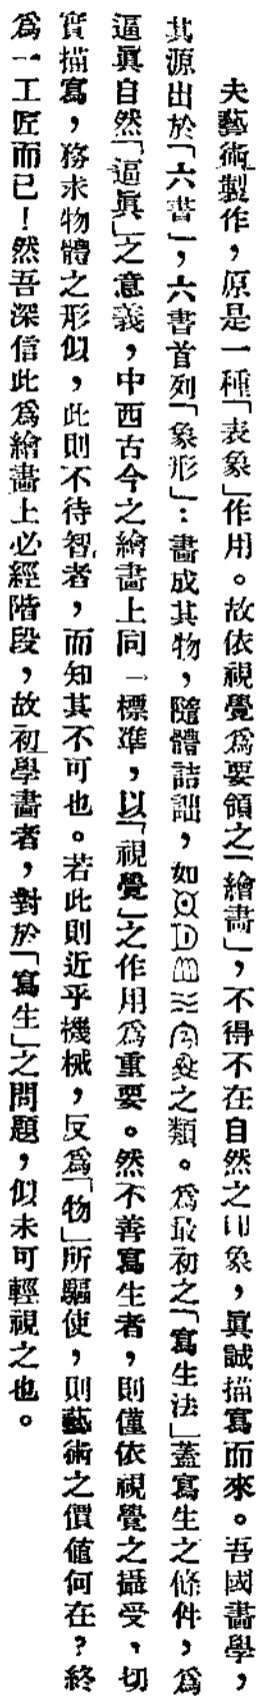 夫藝術製作，原是一種「表象」作用。故依視覺爲要領之「繪畫」，不得不在自然之印象，眞誠描寫而來。吾國畫學，
其源出於「六書」，六書首列「象形」：畫成其物，隨體詰詘，如之類。爲最初之「寫生法」蓋寫生之條件，爲
逼眞自然「逼眞」之意義，中西古今之繪畫上同一標準，以「視覺」之作用爲重要。然不善寫生者，則僅依視覺之攝受、切
實描寫，務求物體之形似，此則不待智者，而知其不可也。若此則近乎機械，反爲「物」所驅使，則藝術之價値何在？終
爲一工匠而已！然吾深信此爲繪畫上必經階段，故初學畫者，對於「寫生」之問題，似未可輕視之也。